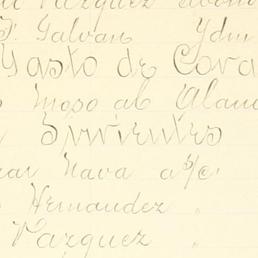 Vazquez abono
F. Galvan Ydm
Gasto de Cora
Moso al Alam
Sirvientes
Nava a/c.
Hernandez "
Vazquez "